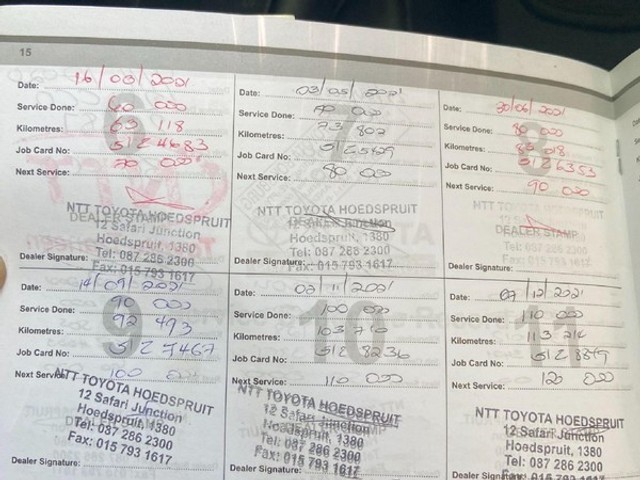 15
Date: 16/03/2021
Service Done: 60 000
Kilometres: 63 118
Job Card No: 5124683
Next Service: 70 000
NTT TOYOTA HOEDSPRUIT
DEALER STAMP
12 Safari Junction
Hoedspruit, 1380
Tel: 087 286 2300
Fax: 015 793 1617
Dealer Signature:
Date: 03/05/2021
Service Done: 70 000
Kilometres: 73 802
Job Card No:
Next Service: 80 000
NTT TOYOTA HOEDSPRUIT
12 Safari Junction
Hoedspruit, 1380
Tel: 087 286 2300
Fax: 015 793 1617
Dealer Signature:
8
Date: 30/06/2021
Service Done: 80 000
Kilometres:
Job Card No: 5126353
Next Service: 90 000
NTT TOYOTA HOEDSPRUIT
DEALER STAMP
Hoedspruit, 1380
Tel: 087 286 2300
Fax: 015 793 1617
Dealer Signature:
9
Date: 14/09/2021
Service Done: 90 000
Kilometres: 92 493
Job Card No: 5127467
Next Service: 100 000
NTT TOYOTA HOEDSPRUIT
12 Safari Junction
Hoedspruit, 1380
Tel: 087 286 2300
Fax: 015 793 1617
Dealer Signature:
10
Date: 02/11/2021
Service Done: 100 000
Kilometres: 103 710
Job Card No: 5128236
Next Service: 110 000
NTT TOYOTA HOEDSPRUIT
12 Safari Junction
Hoedspruit, 1380
Tel: 087 286 2300
Fax: 015 793 1617
Dealer Signature:
11
Date: 07/12/2021
Service Done: 110 000
Kilometres: 113 214
Job Card No:
Next Service: 120 000
NTT TOYOTA HOEDSPRUIT
12 Safari Junction
Hoedspruit, 1380
Tel: 087 286 2300
Fax: 015 793 1617
Dealer Signature: